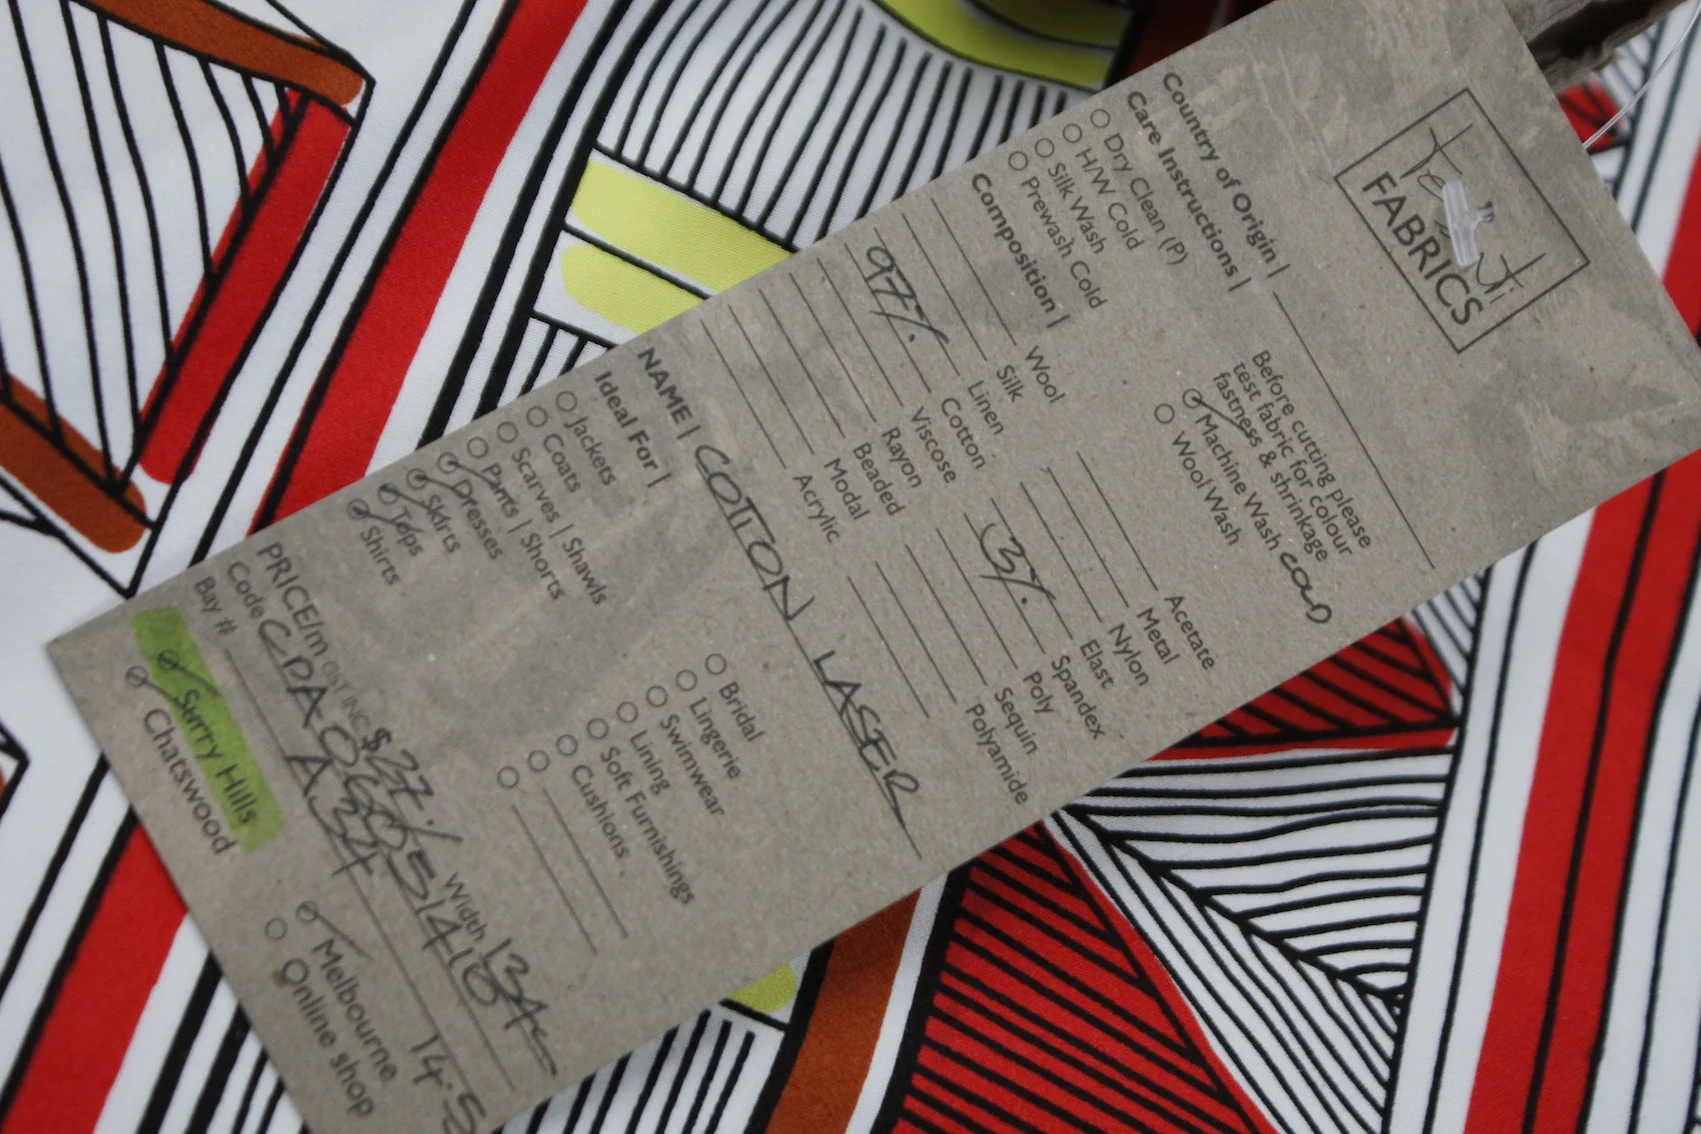 FABRICS
Country of Origin |
Care Instructions |
Dry Clean (P)
H/W Cold
Silk Wash
Prewash Cold
Before cutting please
test fabric for colour
fastness & shrinkage
Machine Wash COLD
Wool Wash
Composition |
Wool
Silk
Linen
97% Cotton
Viscose
Rayon
Beaded
Modal
Acrylic
Acetate
Metal
Nylon
Elast
3% Spandex
Poly
Sequin
Polyamide
NAME | COTTON LASER
Ideal For |
Jackets
Coats
Scarves | Shawls
Pants | Shorts
Dresses
Skirts
Tops
Shirts
Bridal
Lingerie
Swimwear
Lining
Soft Furnishings
Cushions
PRICE/m GST INC $27./ Width 134c
Code
Bay # A.34
Surry Hills
Chatswood
Melbourne
Online shop